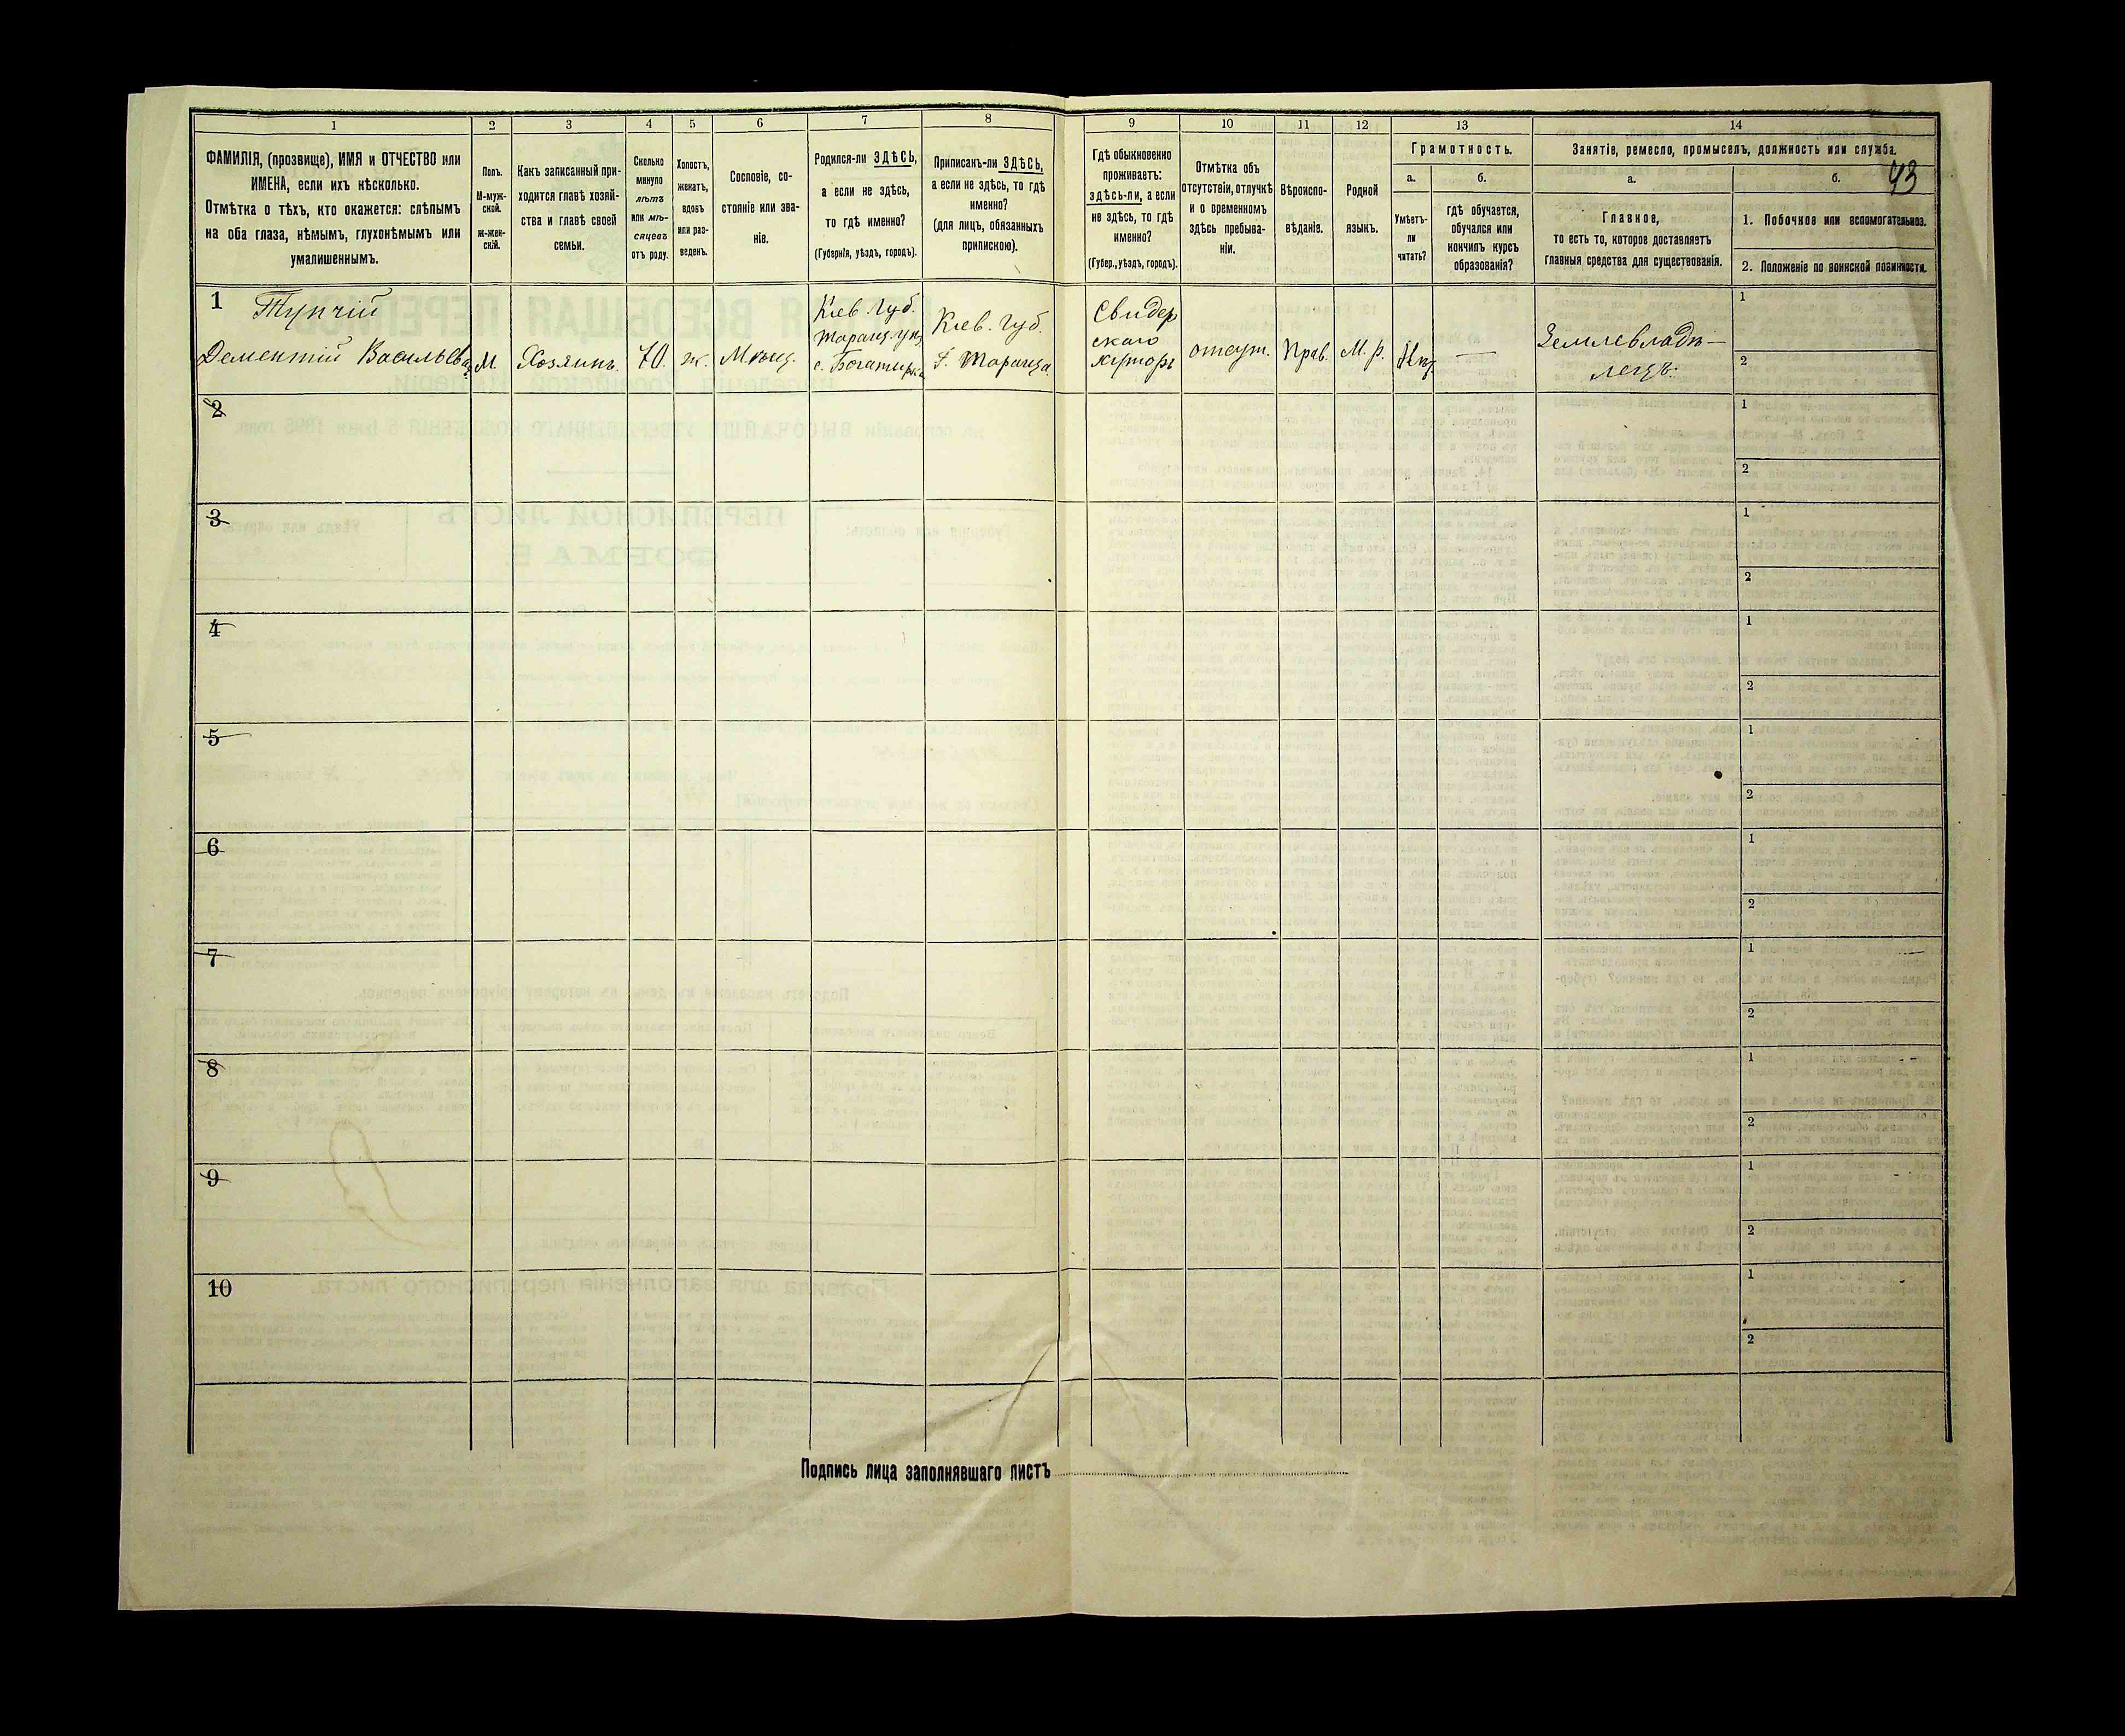 1 2 3 4 5 6 7 8 9 10 11 12 13 14
ФАМИЛІЯ, (прозвище), ИМЯ и ОТЧЕСТВО или
ИМЕНА, если ихъ нѣсколько.
Отмѣтка о тѣхъ, кто окажется: слѣпымъ
на оба глаза, нѣмымъ, глухонѣмымъ или
умалишеннымъ.
Полъ.
М-муж-
ской.
ж-жен-
скій.
Какъ записанный при-
ходится главѣ хозяй-
ства и главѣ своей
семьи.
Сколько
минуло
лѣтъ
или мѣ-
сяцевъ
отъ роду.
Холостъ,
женатъ,
вдовъ
или раз-
веденъ.
Сословіе, со-
стояніе или зва-
ніе.
Родился-ли ЗДѢСЬ,
а если не здѣсь,
то гдѣ именно?
(Губернія, уѣздъ, городъ).
Приписанъ-ли ЗДѢСЬ,
а если не здѣсь, то гдѣ
именно?
(для лицъ, обязанныхъ
припискою).
Гдѣ обыкновенно
проживаетъ:
здѣсь-ли, а если
не здѣсь, то гдѣ
именно?
(Губер., уѣздъ, городъ).
Отмѣтка объ
отсутствіи, отлучкѣ
и о временномъ
здѣсь пребыва-
ніи.
Вѣроиспо-
вѣданіе.
Родной
языкъ.
Грамотность.
а.
Умѣетъ-
ли
читать?
б.
гдѣ обучается,
обучался или
кончилъ курсъ
образованія?
Занятіе, ремесло, промыселъ, должность или служба.
93
а.
Главное,
то есть то, которое доставляетъ
главныя средства для существованія.
б.
1. Побочное или вспомогательное.
2. Положеніе по воинской повинности.
1 Тупчій
Дементій Васильевъ
М.
Хозяинъ.
70.
ж.
М�ѣщ.
Кіев. Губ.
Таращ. у.
с. Богатырка
Кіев. Губ.
г. Тараща
Свидер
скаго
хуторъ
отсут.
Прав.
М. р.
Нѣт
—
Землевладѣ—
лецъ.
1
2
2
1
2
3
1
2
4
1
2
5
1
2
6
1
2
7
1
2
8
1
2
9
1
2
10
1
2
Подпись лица заполнявшаго листъ